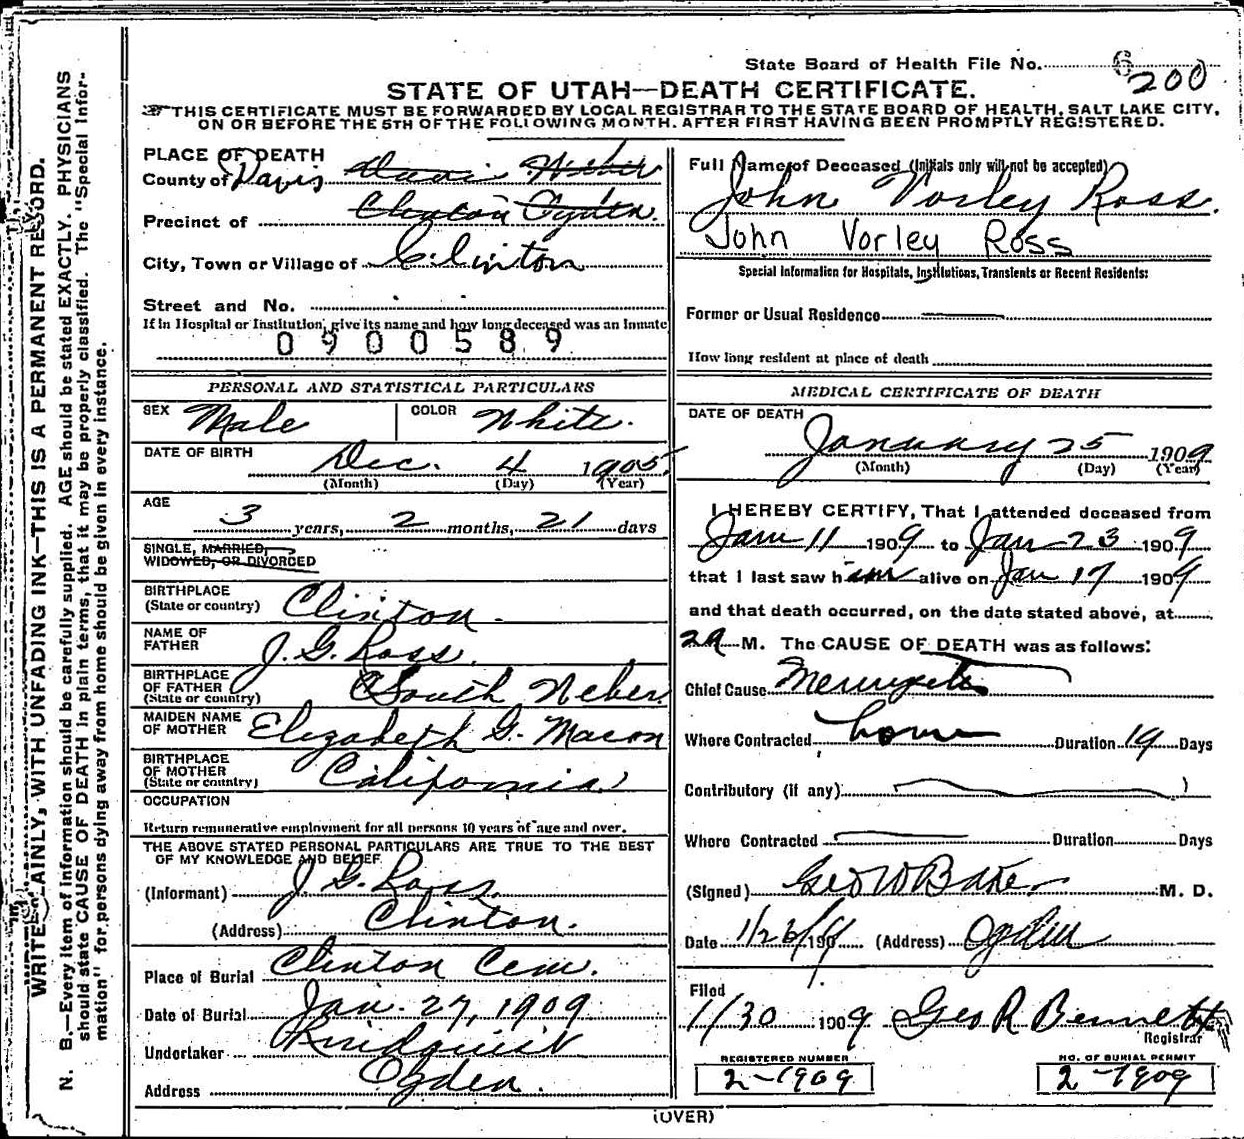 State Board of Health File No. 6
200
STATE OF UTAH—DEATH CERTIFICATE.
THIS CERTIFICATE MUST BE FORWARDED BY LOCAL REGISTRAR TO THE STATE BOARD OF HEALTH, SALT LAKE CITY,
ON OR BEFORE THE 5TH OF THE FOLLOWING MONTH, AFTER FIRST HAVING BEEN PROMPTLY REGISTERED.
WRITE PLAINLY, WITH UNFADING INK—THIS IS A PERMANENT RECORD.
N. B.—Every item of information should be carefully supplied. AGE should be stated EXACTLY. PHYSICIANS
should state CAUSE OF DEATH in plain terms, that it may be properly classified. The "Special Infor-
mation" for persons dying away from home should be given in every instance.
PLACE OF DEATH
County of Davis Davis Weber
Precinct of Clinton Ogden.
City, Town or Village of Clinton
Street and No.
If in Hospital or Institution, give its name and how long deceased was an Inmate
0900589
PERSONAL AND STATISTICAL PARTICULARS
SEX Male COLOR White.
DATE OF BIRTH Dec. 4 1905
(Month) (Day) (Year)
AGE
3 years, 2 months, 21 days
SINGLE, MARRIED,
WIDOWED, OR DIVORCED
BIRTHPLACE
(State or country) Clinton.
NAME OF
FATHER J. G. Ross.
BIRTHPLACE
OF FATHER South Weber
(State or country)
MAIDEN NAME
OF MOTHER Elizabeth G. Macon
BIRTHPLACE
OF MOTHER California
(State or country)
OCCUPATION
Return remunerative employment for all persons 10 years of age and over.
THE ABOVE STATED PERSONAL PARTICULARS ARE TRUE TO THE BEST
OF MY KNOWLEDGE AND BELIEF
(Informant) J. G. Ross.
(Address) Clinton.
Place of Burial Clinton Cem.
Date of Burial Jan. 27, 1909
Undertaker
Address Ogden.
Full Name of Deceased (Initials only will not be accepted)
John Vorley Ross.
John Vorley Ross
Special Information for Hospitals, Institutions, Transients or Recent Residents:
Former or Usual Residence
How long resident at place of death
MEDICAL CERTIFICATE OF DEATH
DATE OF DEATH
January 25 1909
(Month) (Day) (Year)
I HEREBY CERTIFY, That I attended deceased from
Jan 11 1909 to Jan 23 1909
that I last saw him alive on Jan 17 1909
and that death occurred, on the date stated above, at
2 a M. The CAUSE OF DEATH was as follows:
Chief Cause Meningitis
Where Contracted home Duration 19 Days
Contributory (if any)
Where Contracted Duration Days
(Signed) Geo W Baker M. D.
Date 1/26/1909 (Address) Ogden
Filed
1/30 1909 Geo R Bennett
Registrar
REGISTERED NUMBER
2-1909
NO. OF BURIAL PERMIT
2-1909
(OVER)